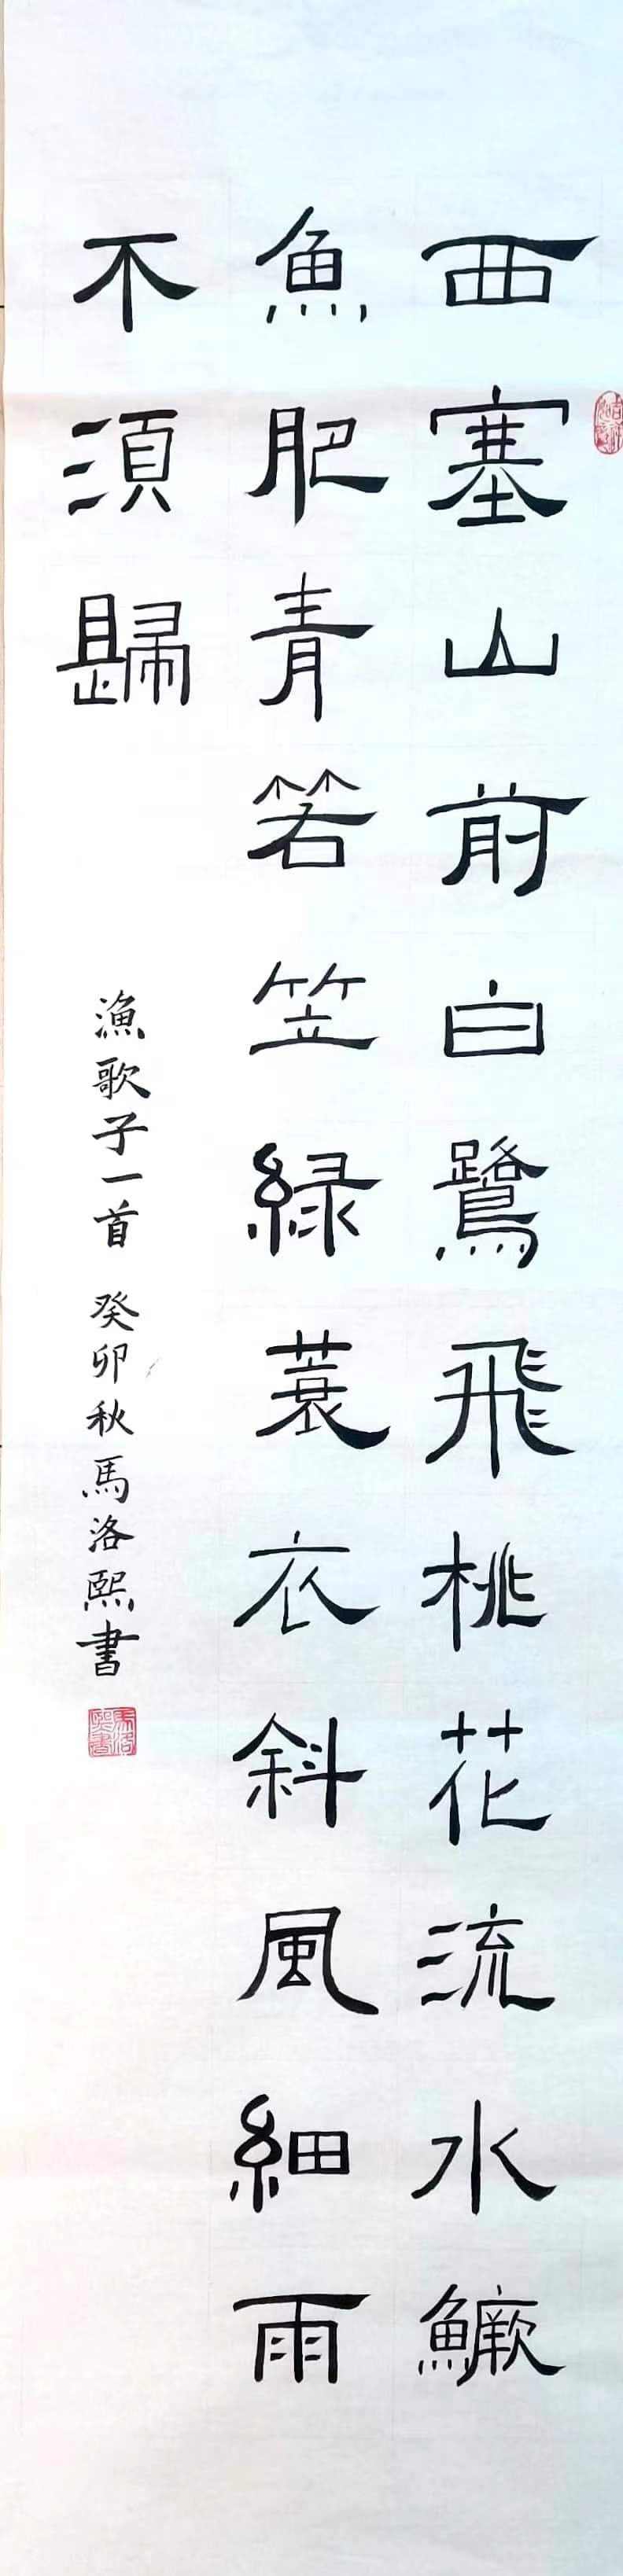 西塞山前白鷺飛桃花流水鱖
魚肥青箬笠緑蓑衣斜風細雨
不湏歸
漁歌子一首 癸卯秋馬洛熙書
馬洛熙書